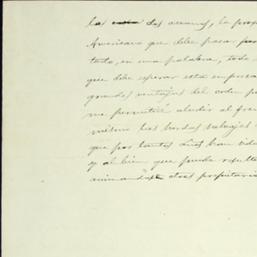 la des acuary, la prop
Americana que debe pasar por
todo, en una palabra, todo
que debe esperar esta empresa
grandes ventajas del orden p
me permitiré aludir al fren
mismo las bordas trabajos
que por tantos años han vide
y al bien que pueda resulta
animandose otros propietario